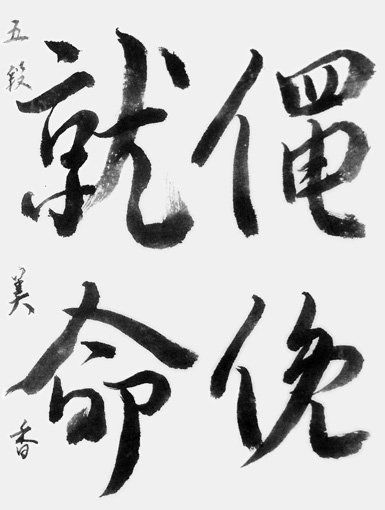 僶俛
就命
五段 美香